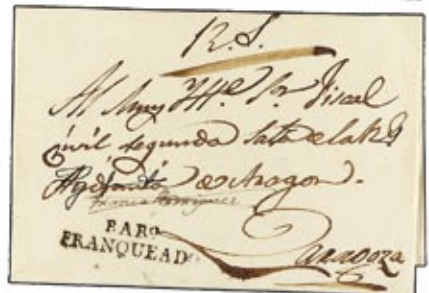 R. S.
Al Muy Ytte. Sr. Fiscal
civil segunda Sala de la Rl
de Aragon.
BARo
FRANQUEAD
Zaragoza